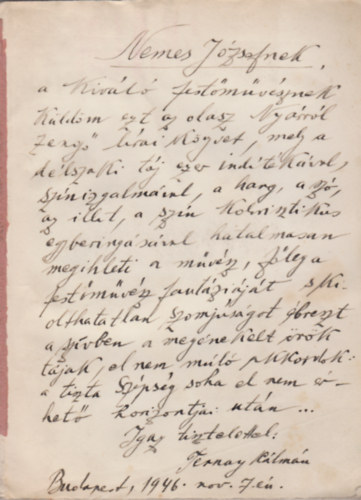 Nemes Józsefnek,
a kiváló festőművésznek
küldöm ezt az olasz nyárról
zengő lírai könyvet, mely a
délszaki táj ezer indítékával,
színizgalmával, a hang, a szó,
az illat, a szín kolorisztikus
egybeírásával hatalmasan
megihleti a művész, főleg a
festőművész fantáziáját s ki-
olthatatlan szomjúságot ébreszt
a szívben a megénekelt örök
tájak, el nem múló akkordok:
a tiszta szépség soha el nem ér-
hető horizontjai után ...
Igaz tisztelettel:
Ternay Kálmán
Budapest, 1946. nov. 7-én.